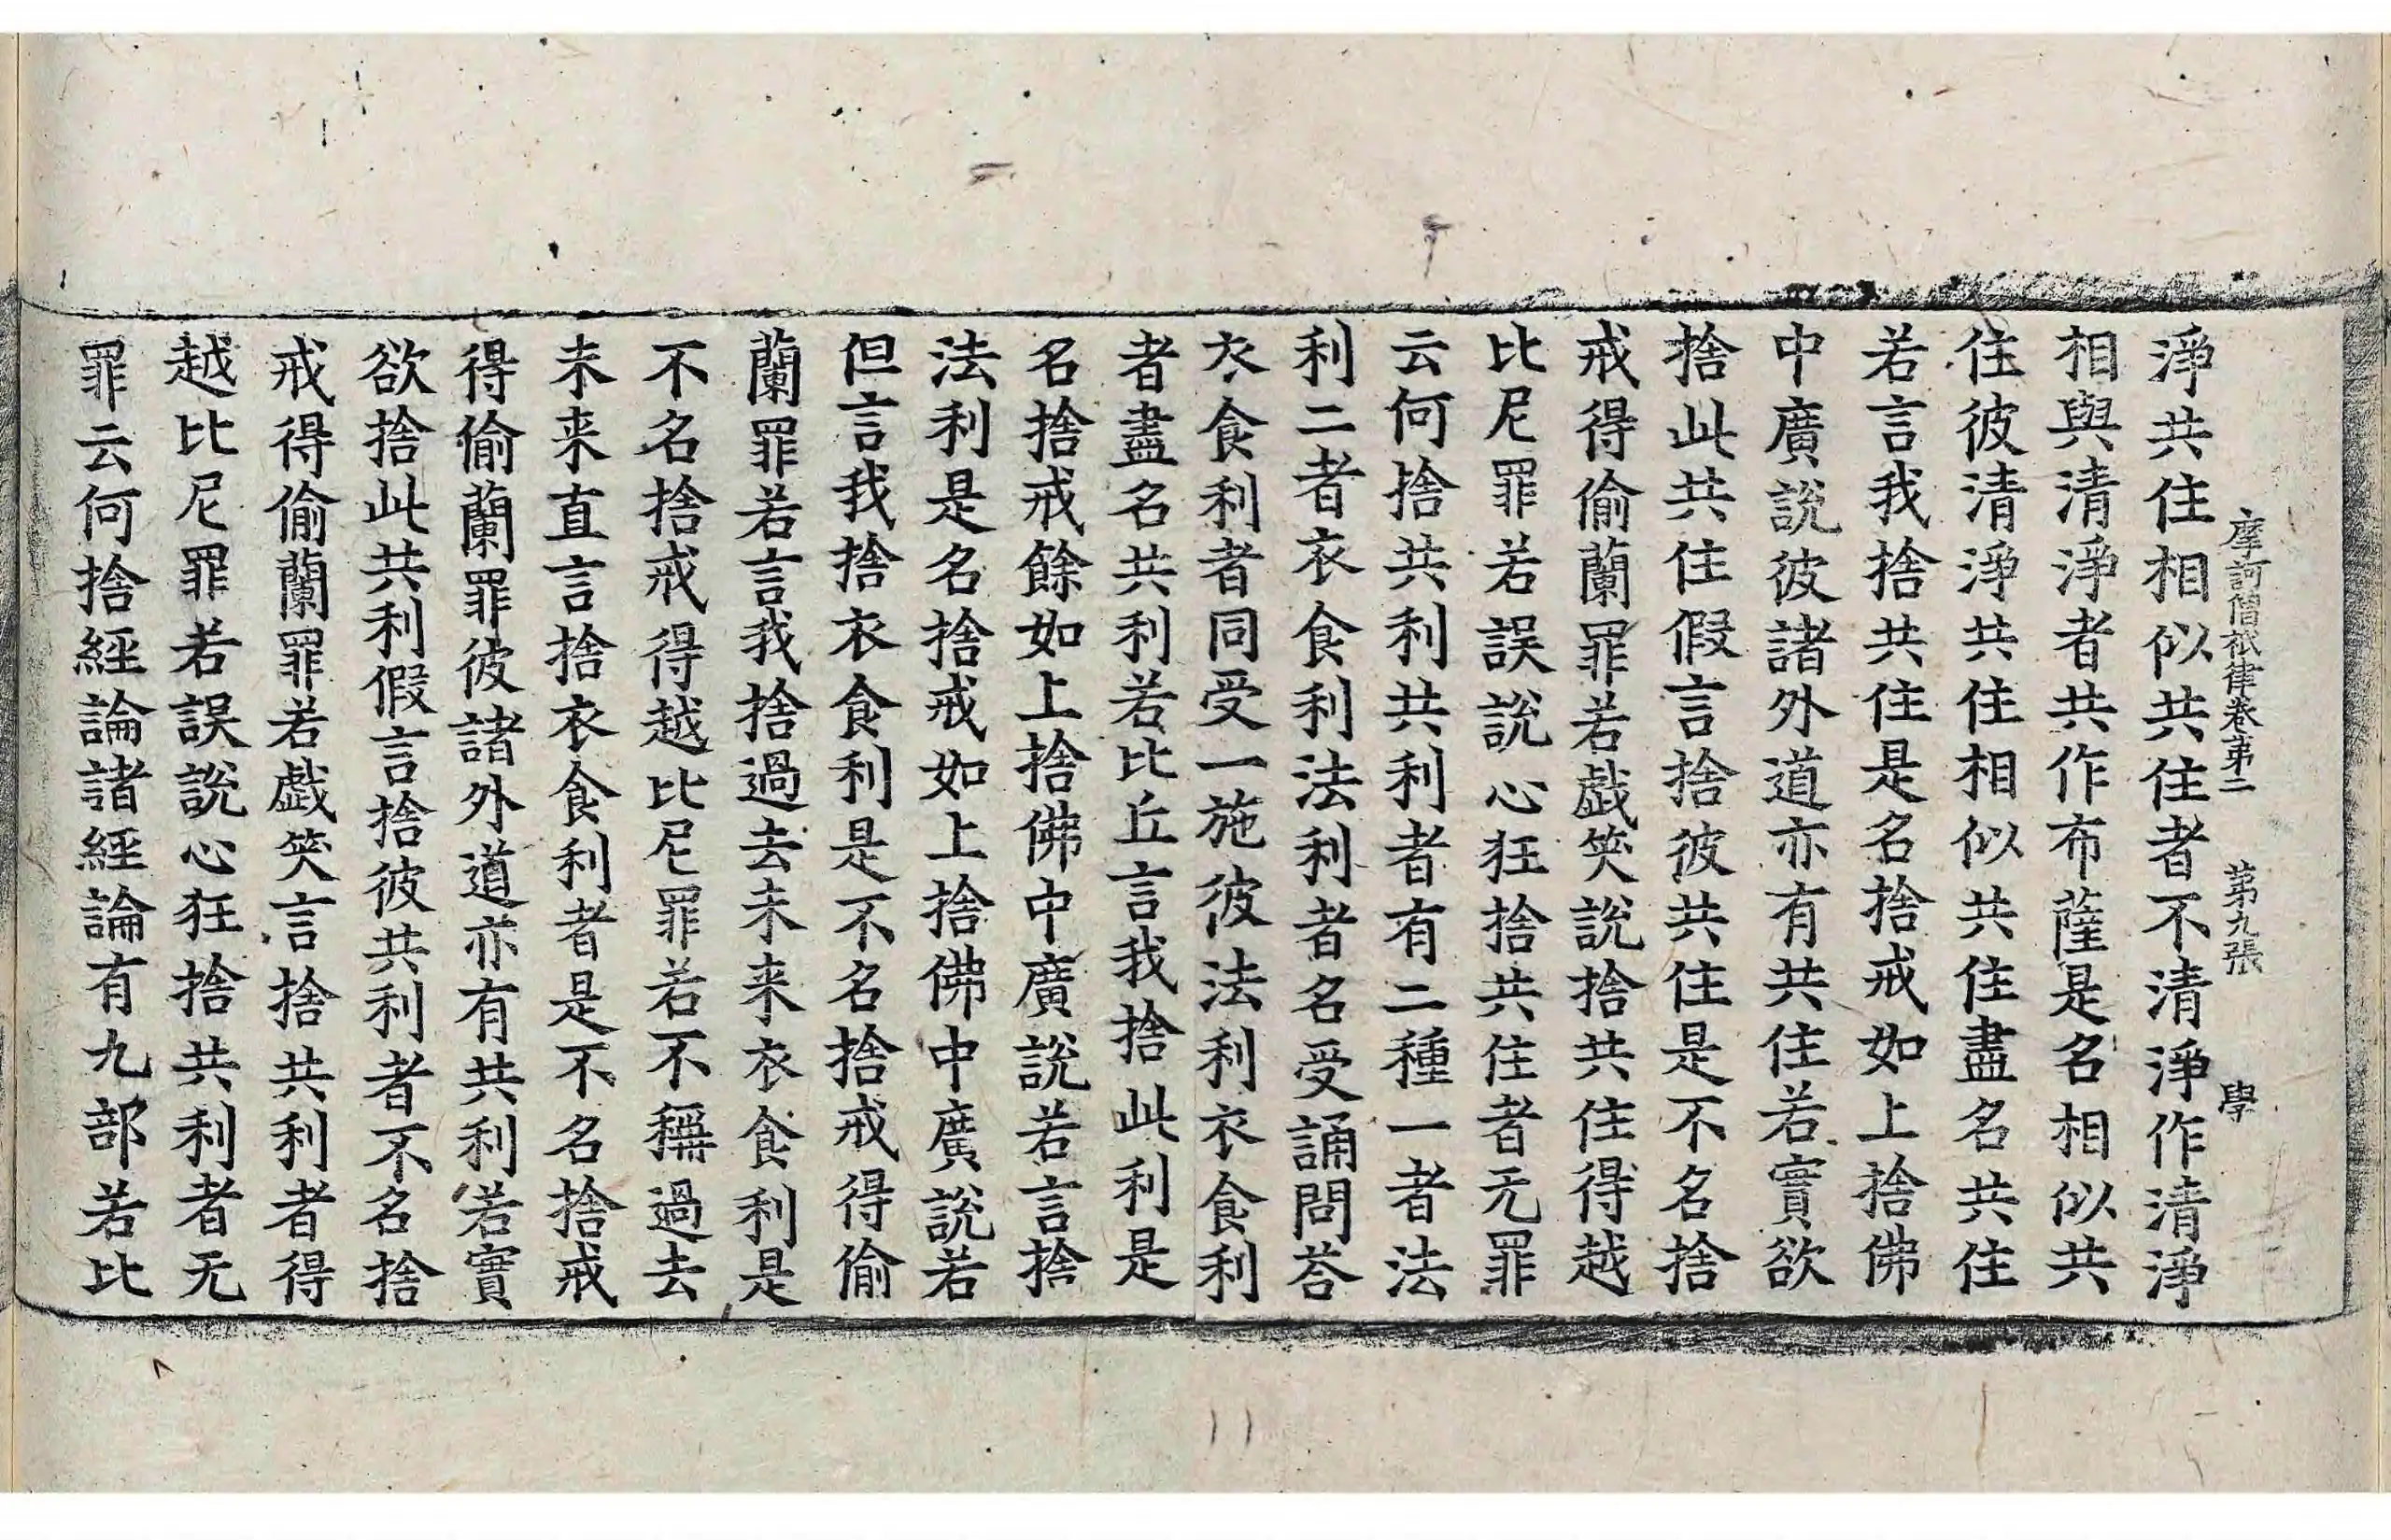 摩訶僧祇律卷第二 第九張 學
淨共住相似共住者不清淨作清淨
相與清淨者共作布薩是名相似共
住彼清淨共住相似共住盡名共住
若言我捨共住是名捨戒如上捨佛
中廣說彼諸外道亦有共住若實欲
捨此共住假言捨彼共住是不名捨
戒得偷蘭罪若戲笑說捨共住得越
比尼罪若誤說心狂捨共住者无罪
云何捨共利共利者有二種一者法
利二者衣食利法利者名受誦問荅
衣食利者同受一施彼法利衣食利
者盡名共利若比丘言我捨此利是
名捨戒餘如上捨佛中廣說若言捨
法利是名捨戒如上捨佛中廣說若
但言我捨衣食利是不名捨戒得偷
蘭罪若言我捨過去未来衣食利是
不名捨戒得越比尼罪若不稱過去
未来直言捨衣食利者是不名捨戒
得偷蘭罪彼諸外道亦有共利若實
欲捨此共利假言捨彼共利者不名捨
戒得偷蘭罪若戲笑言捨共利者得
越比尼罪若誤說心狂捨共利者无
罪云何捨經論諸經論有九部若比